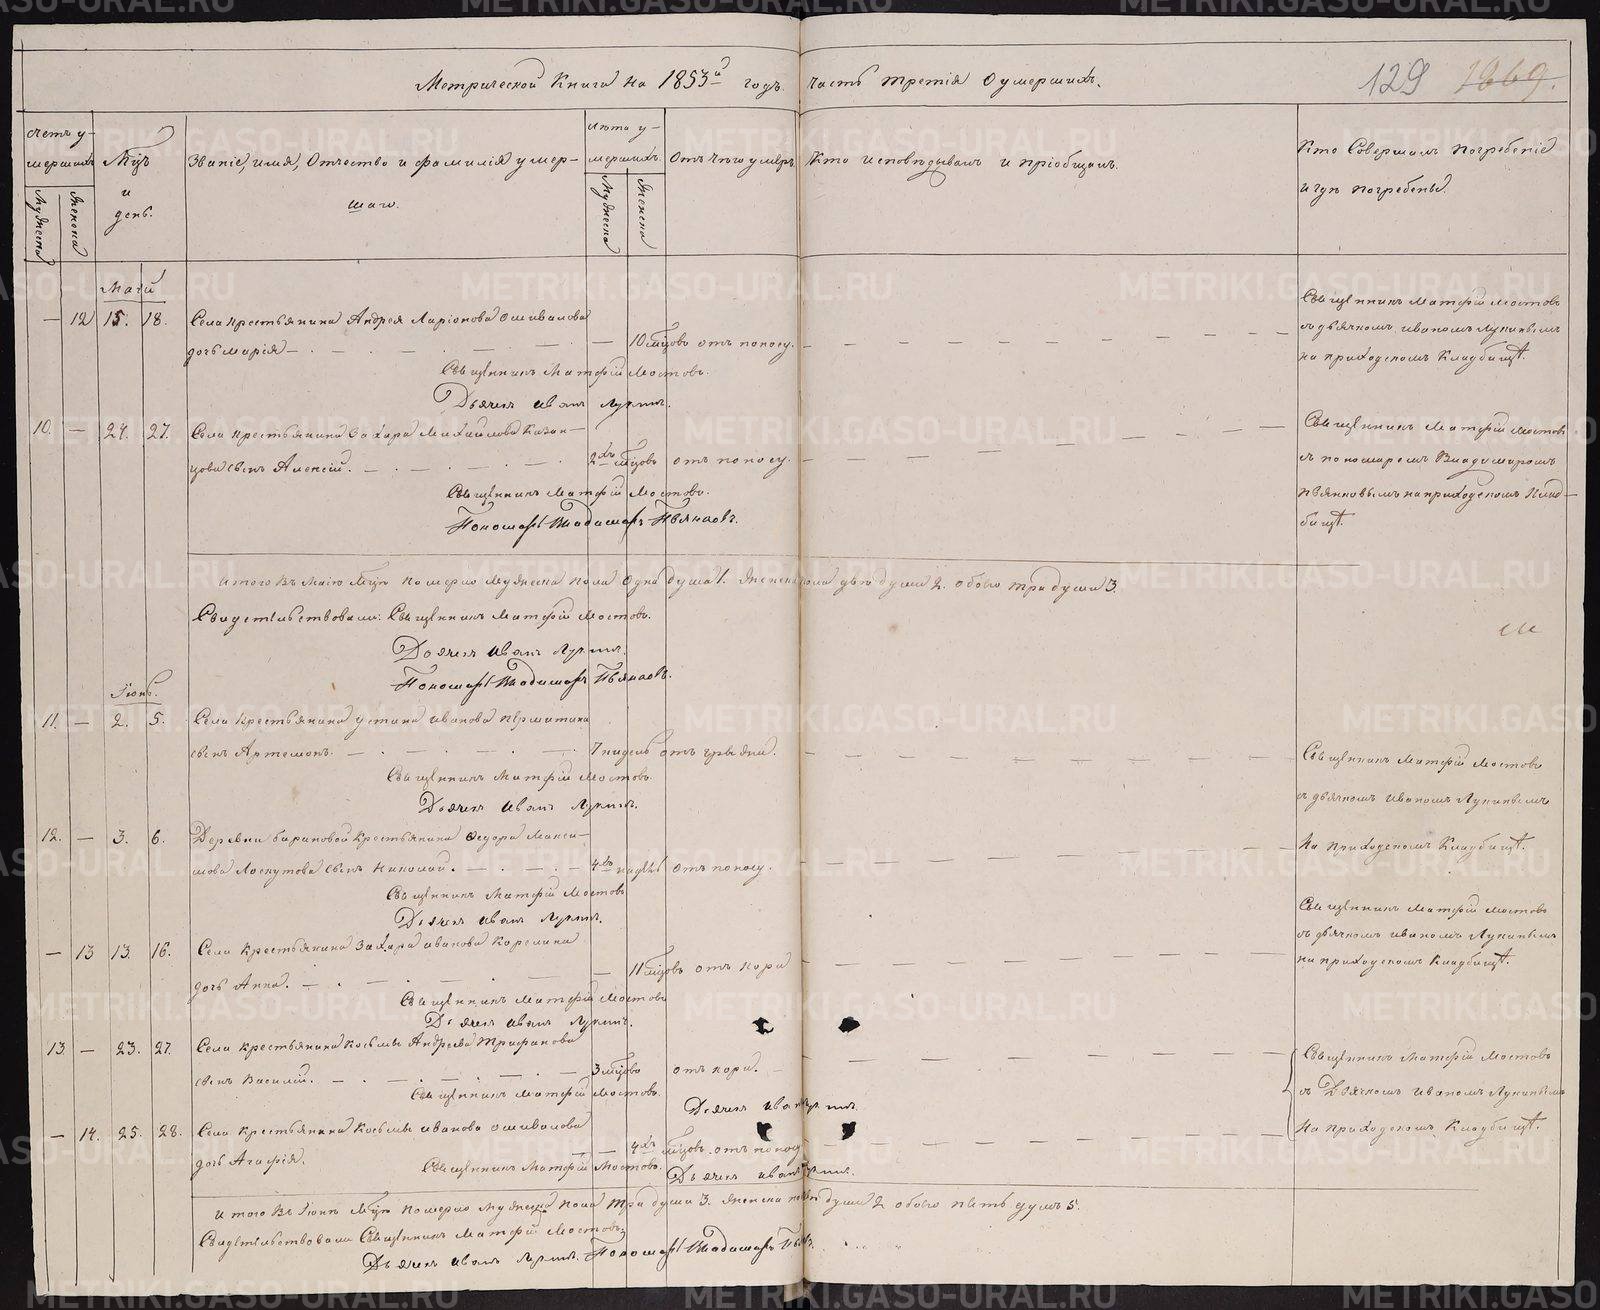 Метрической Книги на 1853й годъ часть третія о умершихъ.
129
1869.
Счетъ у-
мершихъ
Мужеска
Женска
Мцъ
и
день.
Званіе, имя, Отчество и фамилія умер-
шаго.
Лѣта у-
мершихъ
Мужеска
Женска
Отъ чего умеръ
Кто исповѣдывалъ и пріобщалъ.
Кто Совершалъ Погребеніе
и гдѣ погребены.
Маій
— 12 15. 18. Села крестьянина Андрея Ларіонова Ошивалова
дочь Марія — 10 мцовъ отъ поносу.
Священникъ Матфій Мостовъ.
Дьячекъ Иванъ Лукинъ.
Священникъ Матфій Мостовъ
съ дьячкомъ Иваномъ Лукинымъ
на приходскомъ Кладбищѣ.
10. — 24. 27. Села крестьянина Захара Михайлова Казан-
цова сынъ Алексій. 2хъ мцовъ отъ поносу.
Священникъ Матфій Мостовъ.
Пономарь Владимиръ Пьянковъ.
Священникъ Матфій Мостовъ
съ пономаремъ Владимиромъ
Пьянковымъ на приходскомъ Клад-
бищѣ.
Итого въ Маіѣ Мцѣ померло Мужеска пола одна душа 1. Женска пола двѣ души 2. обоего три души 3.
Свидетельствовали: Священникъ Матфій Мостовъ.
Дьячекъ Иванъ Лукинъ.
Пономарь Владимиръ Пьянковъ.
Іюнь.
11. — 2. 5. Села Крестьянина Устина Иванова
сынъ Артемонъ. 7 недель отъ грыжи.
Священникъ Матфій Мостовъ.
Дьячекъ Иванъ Лукинъ.
Священникъ Матфій Мостовъ
съ дьячкомъ Иваномъ Лукинымъ
на приходскомъ Кладбищѣ.
12. — 3. 6. Деревни Барановой Крестьянина Федора Макси-
мова Лоскутова сынъ Николай. 4хъ недель отъ поносу.
Священникъ Матфій Мостовъ
Дьячекъ Иванъ Лукинъ.
— 13 13. 16. Села Крестьянина Захара Иванова Корелина
дочь Анна. 11 мцовъ отъ кори
Священникъ Матфій Мостовъ
Дьячекъ Иванъ Лукинъ.
Священникъ Матфій Мостовъ
съ дьячкомъ Иваномъ Лукинымъ
на приходскомъ Кладбищѣ.
13. — 23. 27. Села крестьянина Косьмы Андреева Трифанова
сынъ Василій. 3 мцовъ отъ кори.
Священникъ Матфій Мостовъ.
Дьячекъ Иванъ Лукинъ.
Священникъ Матфій Мостовъ
съ Дьячкомъ Иваномъ Лукинымъ
на приходскомъ Кладбищѣ.
— 14. 25. 28. Села крестьянина Косьмы Иванова Ошивалова
дочь Агафія. 4хъ мцовъ отъ поносу
Священникъ Матфій Мостовъ.
Дьячекъ Иванъ Лукинъ.
Итого въ Іюнѣ Мцѣ померло мужеска пола три души 3. Женска пола двѣ души 2 обоего пять душъ 5.
Свидетельствовали Священникъ Матфій Мостовъ
Дьячекъ Иванъ Лукинъ. Пономарь Владимиръ
METRIKI.GASO-URAL.RU